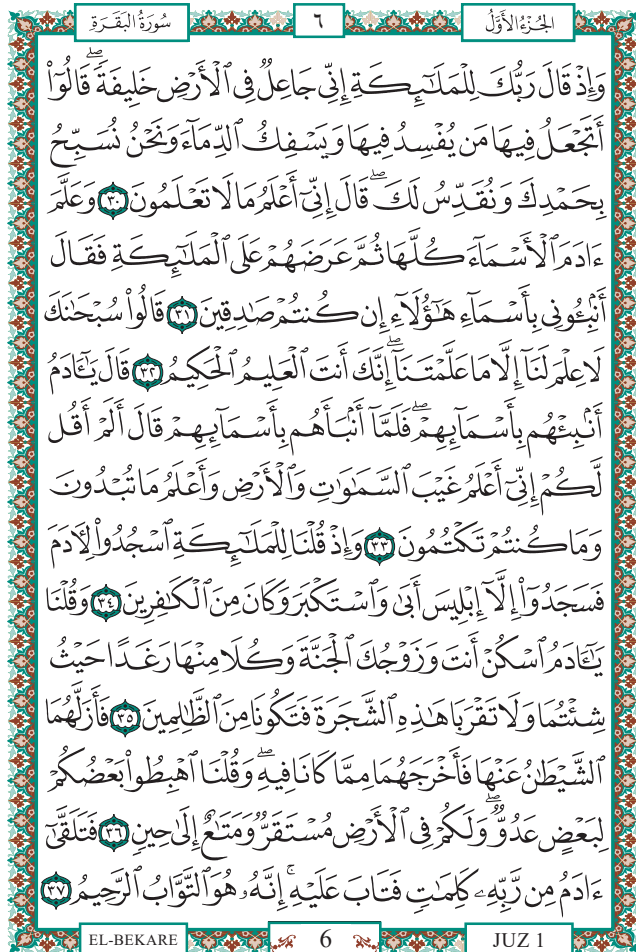 الجُزْءُ الأَوَّلُ
٦
سُورَةُ البَقَرَةِ
وَإِذْ قَالَ رَبُّكَ لِلْمَلَٰٓئِكَةِ إِنِّى جَاعِلٌ فِى ٱلْأَرْضِ خَلِيفَةًۖ قَالُوٓا۟
أَتَجْعَلُ فِيهَا مَن يُفْسِدُ فِيهَا وَيَسْفِكُ ٱلدِّمَآءَ وَنَحْنُ نُسَبِّحُ
بِحَمْدِكَ وَنُقَدِّسُ لَكَۖ قَالَ إِنِّىٓ أَعْلَمُ مَا لَا تَعْلَمُونَ ٣٠ وَعَلَّمَ
ءَادَمَ ٱلْأَسْمَآءَ كُلَّهَا ثُمَّ عَرَضَهُمْ عَلَى ٱلْمَلَٰٓئِكَةِ فَقَالَ
أَنۢبِـُٔونِى بِأَسْمَآءِ هَٰٓؤُلَآءِ إِن كُنتُمْ صَٰدِقِينَ ٣١ قَالُوا۟ سُبْحَٰنَكَ
لَا عِلْمَ لَنَآ إِلَّا مَا عَلَّمْتَنَآۖ إِنَّكَ أَنتَ ٱلْعَلِيمُ ٱلْحَكِيمُ ٣٢ قَالَ يَٰٓـَٔادَمُ
أَنۢبِئْهُم بِأَسْمَآئِهِمْۖ فَلَمَّآ أَنۢبَأَهُم بِأَسْمَآئِهِمْ قَالَ أَلَمْ أَقُل
لَّكُمْ إِنِّىٓ أَعْلَمُ غَيْبَ ٱلسَّمَٰوَٰتِ وَٱلْأَرْضِ وَأَعْلَمُ مَا تُبْدُونَ
وَمَا كُنتُمْ تَكْتُمُونَ ٣٣ وَإِذْ قُلْنَا لِلْمَلَٰٓئِكَةِ ٱسْجُدُوا۟ لِءَادَمَ
فَسَجَدُوٓا۟ إِلَّآ إِبْلِيسَ أَبَىٰ وَٱسْتَكْبَرَ وَكَانَ مِنَ ٱلْكَٰفِرِينَ ٣٤ وَقُلْنَا
يَٰٓـَٔادَمُ ٱسْكُنْ أَنتَ وَزَوْجُكَ ٱلْجَنَّةَ وَكُلَا مِنْهَا رَغَدًا حَيْثُ
شِئْتُمَا وَلَا تَقْرَبَا هَٰذِهِ ٱلشَّجَرَةَ فَتَكُونَا مِنَ ٱلظَّٰلِمِينَ ٣٥ فَأَزَلَّهُمَا
ٱلشَّيْطَٰنُ عَنْهَا فَأَخْرَجَهُمَا مِمَّا كَانَا فِيهِۖ وَقُلْنَا ٱهْبِطُوا۟ بَعْضُكُمْ
لِبَعْضٍ عَدُوٌّۖ وَلَكُمْ فِى ٱلْأَرْضِ مُسْتَقَرٌّ وَمَتَٰعٌ إِلَىٰ حِينٍ ٣٦ فَتَلَقَّىٰٓ
ءَادَمُ مِن رَّبِّهِۦ كَلِمَٰتٍ فَتَابَ عَلَيْهِۚ إِنَّهُۥ هُوَ ٱلتَّوَّابُ ٱلرَّحِيمُ ٣٧
EL-BEKARE
6
JUZ 1